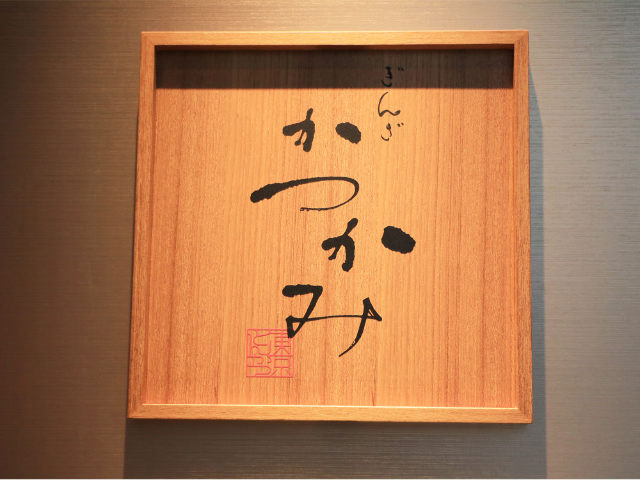 ぎんざ
かつかみ